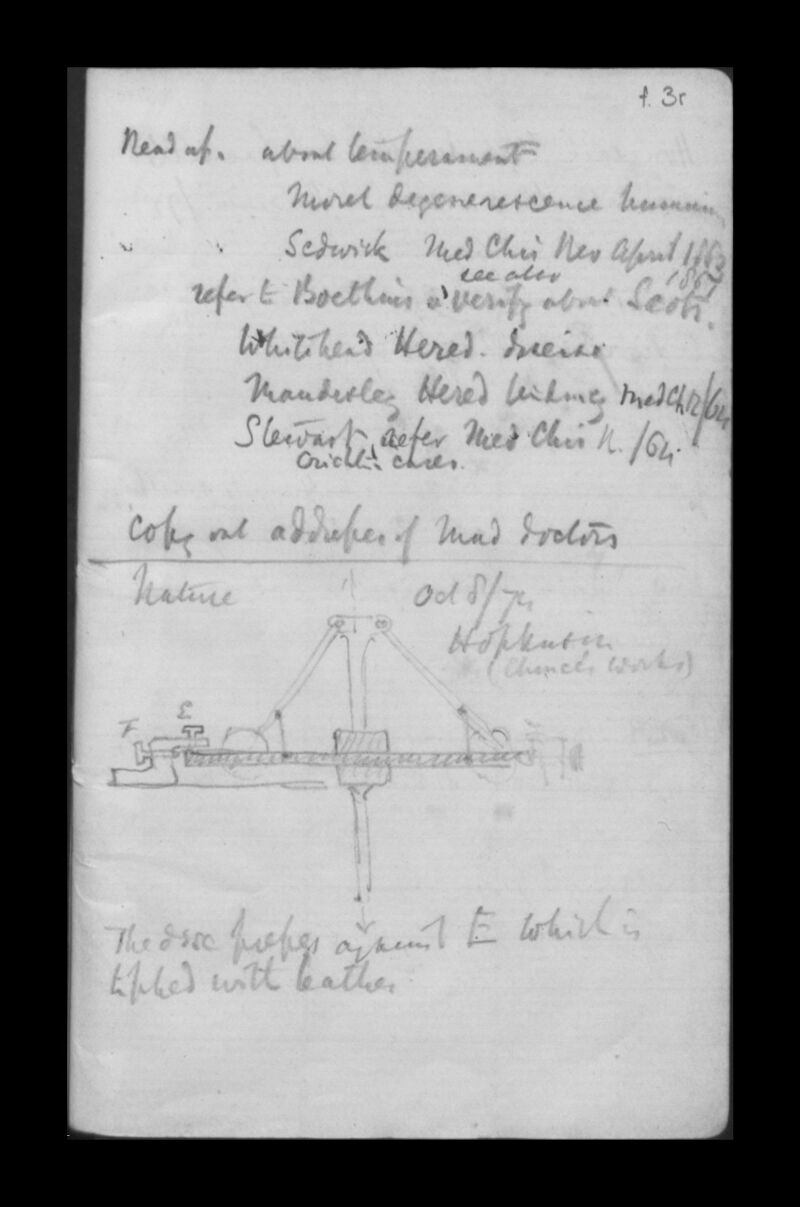 f. 3r
Read up. about temperament
Morel degenerescence humaine
" " Sedwick Med Chir Rev April 1863
see also 1867
refer to Boethius & verify about Scots.
Whitehead Hered. disease
Maudesley Hered kidney Med Ch R/64
Stewart refer Med Chir R. /64
cases.
Copy out addresses of Mad doctors
Nature Oct 8/74
Hopkinson
(Chance's Works)
E
F
The disc presses against E which is
tipped with leather